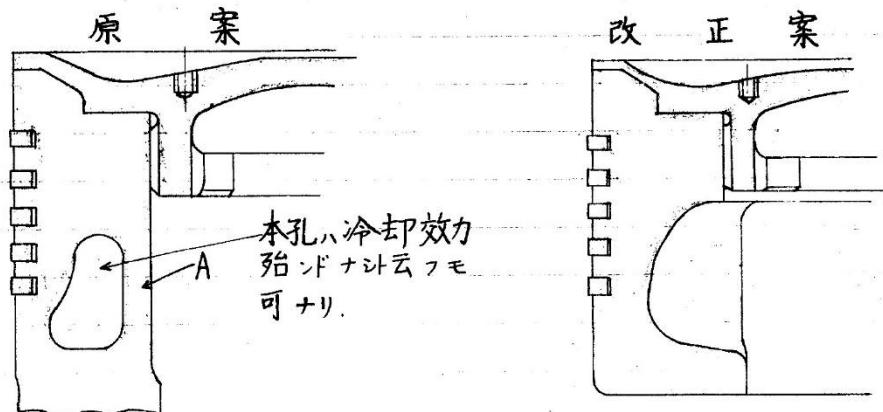 原案
改正案
本孔ハ冷却効力
殆ンドナシト云フモ
可ナリ.
A